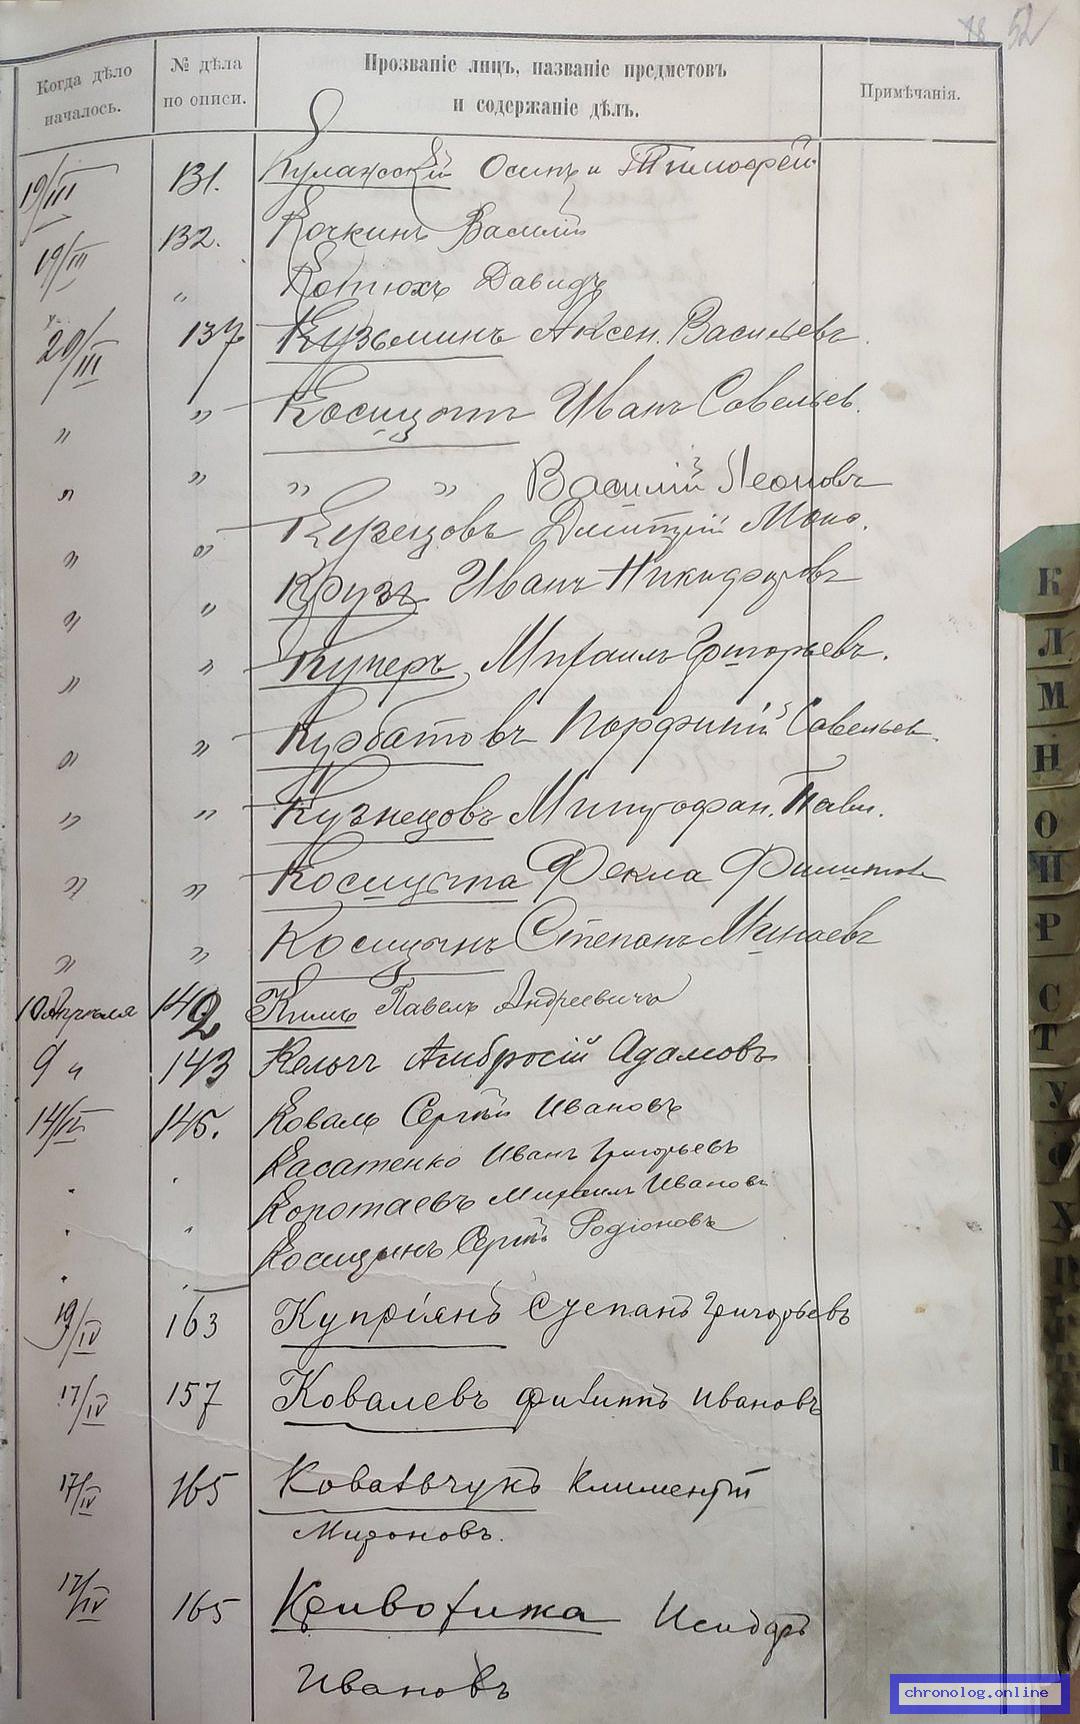 52
Когда дѣло началось.
№ дѣла по описи.
Прозваніе лицъ, названіе предметовъ и содержаніе дѣлъ.
Примѣчанія.
19/III 131. Осипъ и Тимофей
19/III 132. Кочкинъ Василій
„ Котюхъ Давидъ
20/III 137 Кузьминъ Аксен. Васильевъ
„ „ Иванъ Савельев.
„ „ „ „ Василій Леоновъ
„ „ Дмитрій
„ „ Крузъ Иванъ Никифоровъ
„ „ Куперъ Михаилъ Григорьевъ.
„ „ Курбатовъ Порфирій Савельев.
„ „ Кузнецовъ Митрофан. Павл.
„ „ Косицына Фекла Филипов
„ „ Косицынъ Степанъ Минаевъ
10 Апрѣля 142 Кимъ Павелъ Андреевичъ
9 „ 143 Амбросій Адамовъ
14/IV 145. Коваль Сергѣй Ивановъ
Касатенко Иванъ Григорьевъ
Коротаевъ Михаилъ Ивановъ
Косицынъ Сергѣй Родіоновъ
19/IV 163 Купріянъ Степанъ Григорьевъ
17/IV 157 Ковалевъ Филиппъ Ивановъ
17/IV 165 Ковальчукъ Климентій
Мироновъ.
17/IV 165 Криволижа Исидоръ
Ивановъ
К
Л
М
Н
О
П
Р
С
Т
У
Ф
Х
chronolog.online